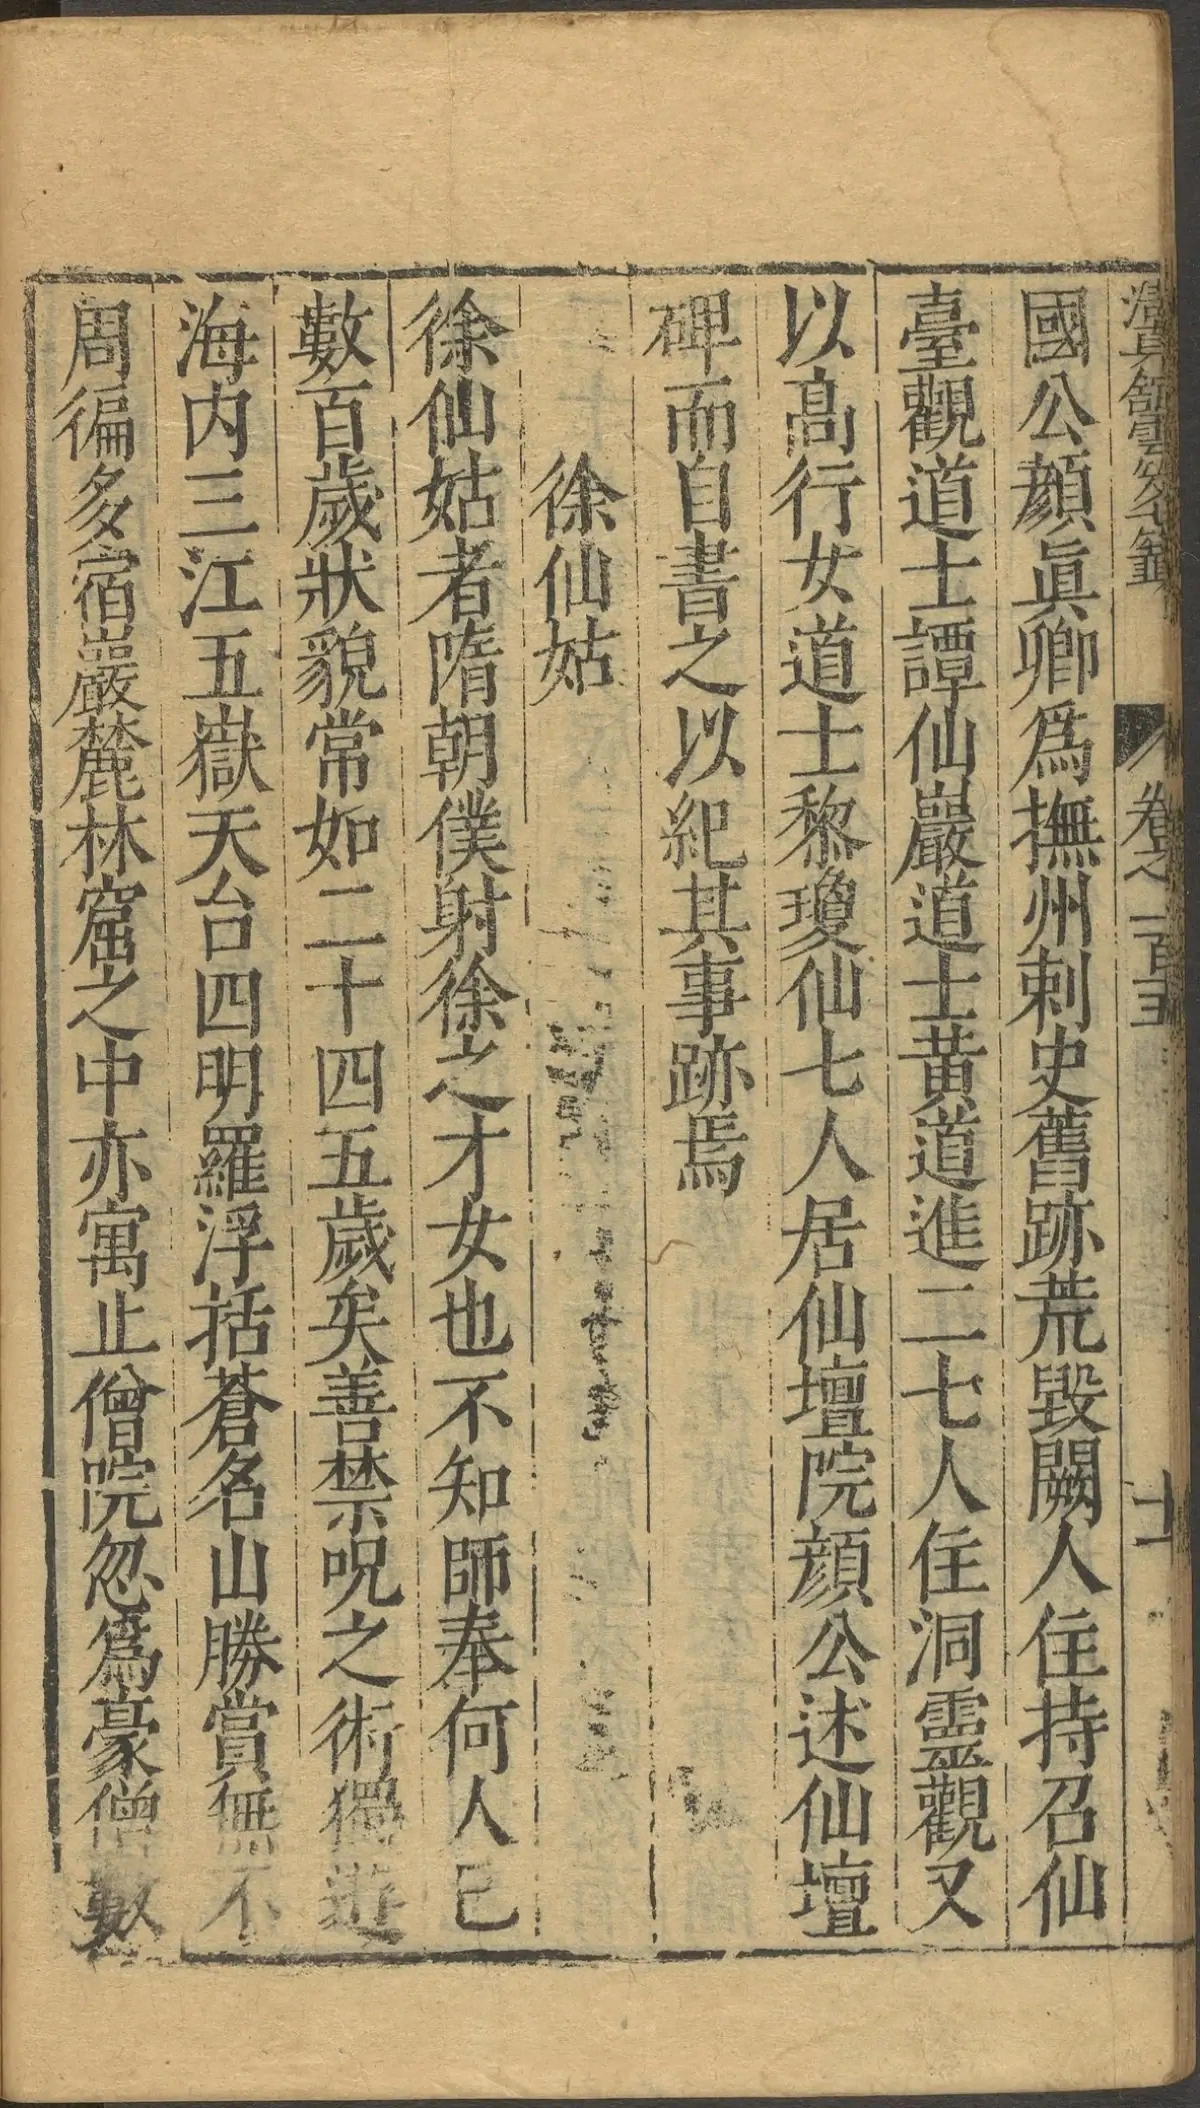 清眞館雲笈七籤 卷之一百十五 十一
國公顏眞卿爲撫州刺史舊跡荒毀闕人住持召仙
臺觀道士譚仙巖道士黄道進二七人住洞靈觀又
以髙行女道士黎瓊仙七人居仙壇院顏公述仙壇
碑而自書之以紀其事跡焉
徐仙姑
徐仙姑者隋朝僕射徐之才女也不知師奉何人已
數百歲狀貌常如二十四五歲矣善禁呪之術獨遊
海内三江五嶽天台四明羅浮括蒼名山勝賞無不
周徧多宿巖麓林窟之中亦寓止僧院忽爲豪僧數